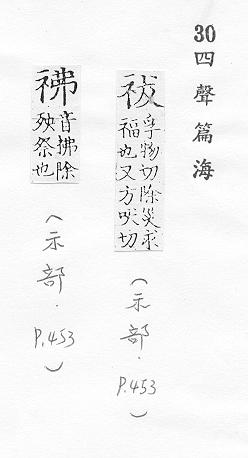 30四聲篇海
祓孚物切除災求
福也又方吠切
（示部．P.453）
𥙡音拂除
殃祭也
（示部．P.453）